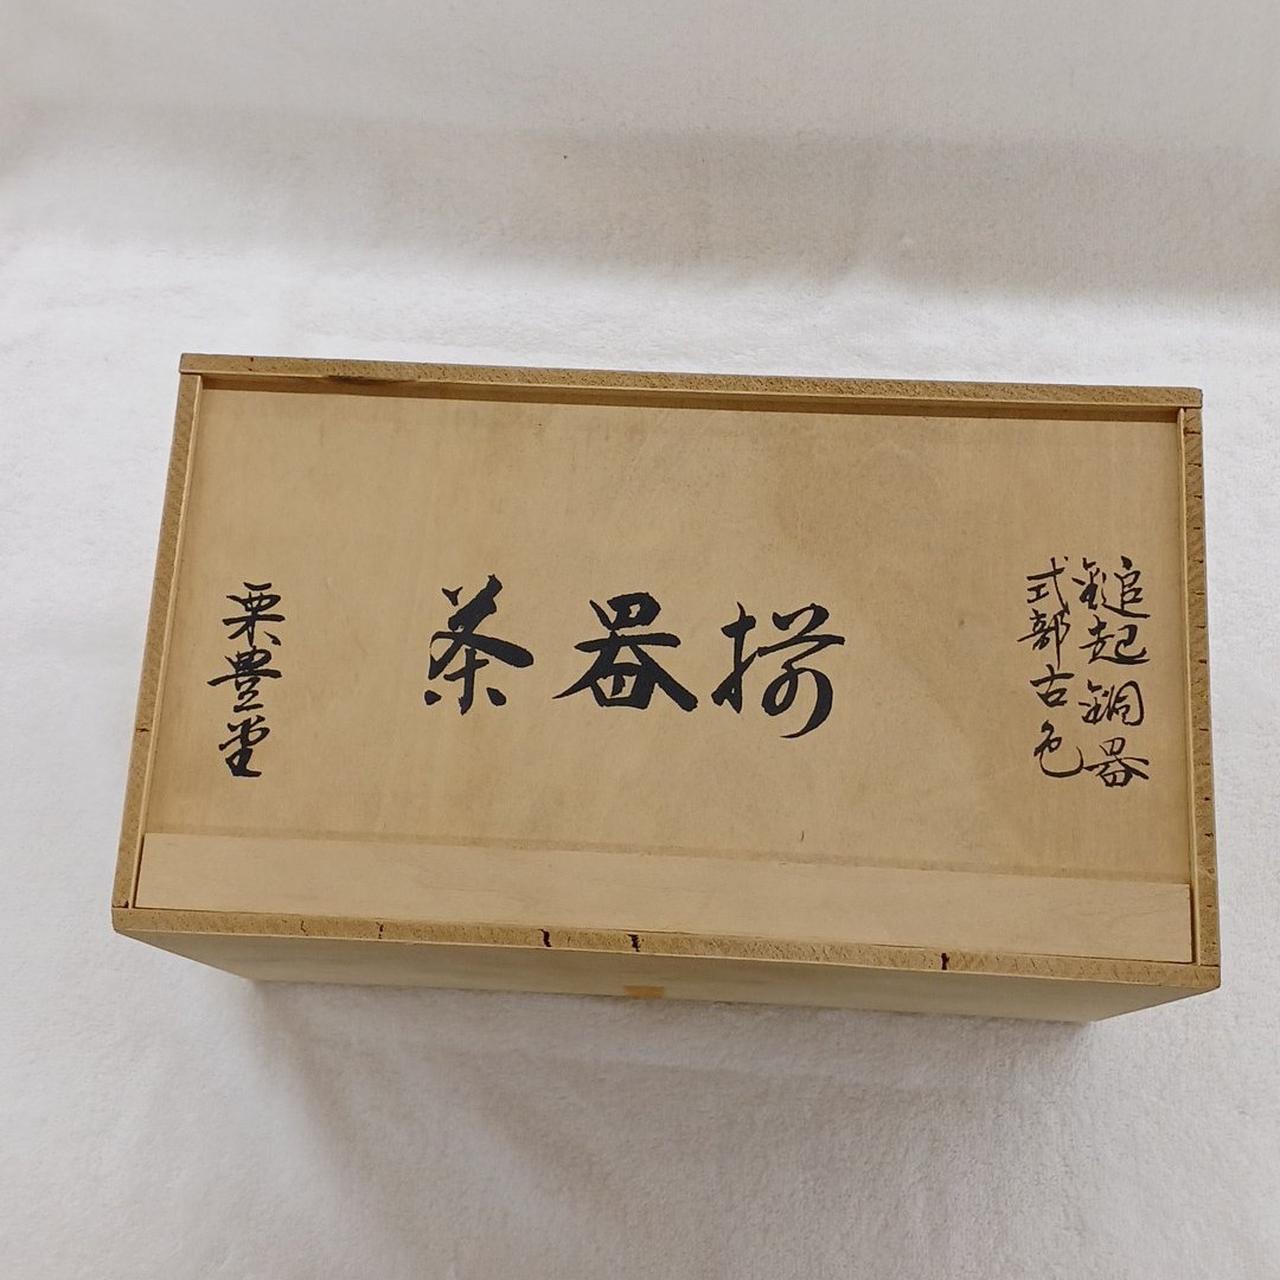 鎚起銅器
式部古色
茶器揃
栗豊堂